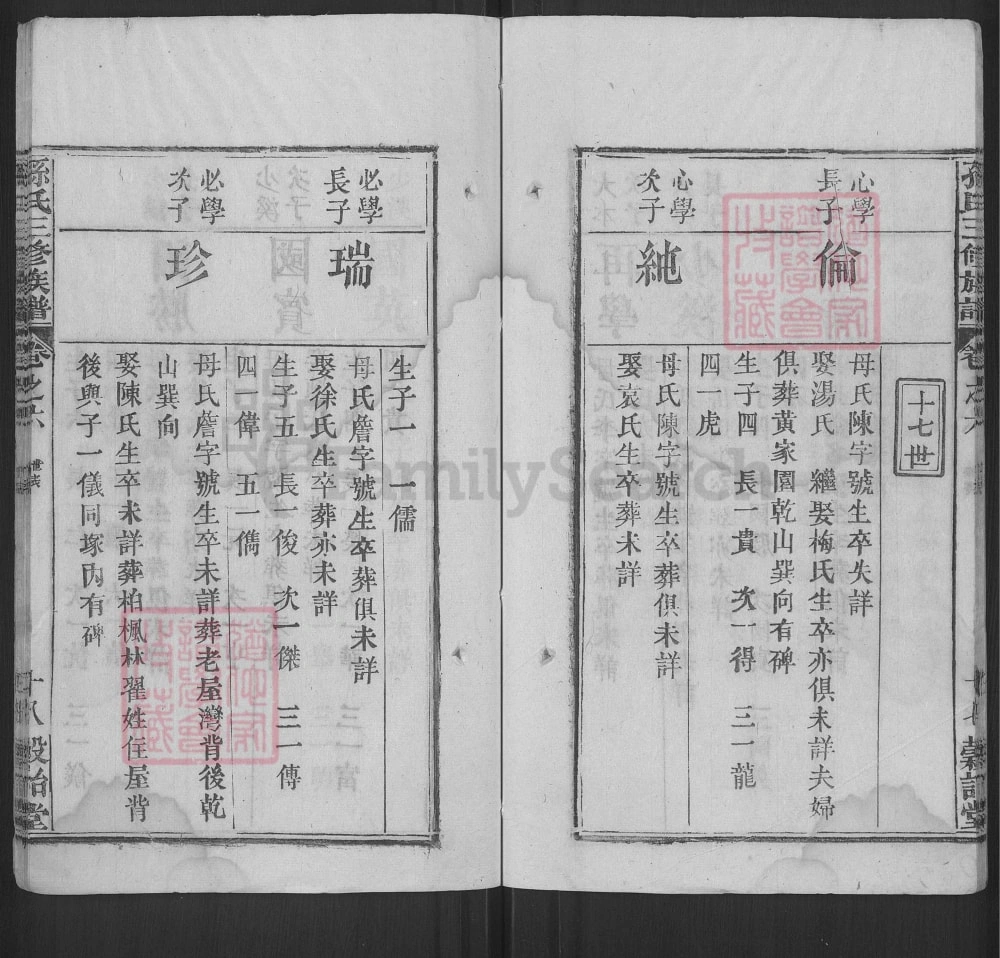 十七世
心學
長子
倫
母氏陳字號生卒失詳
娶湯氏　繼娶梅氏生卒亦俱未詳夫婦
俱葬黃家園乾山巽向有碑
生子四　長一貴　次一得　三一龍
四一虎
心學
次子
純
母氏陳字號生卒葬俱未詳
娶袁氏生卒葬未詳
生子一　一儒
必學
長子
瑞
母氏詹字號生卒葬俱未詳
娶徐氏生卒葬亦未詳
生子五　長一俊　次一傑　三一傳
四一偉　五一儁
必學
次子
珍
母氏詹字號生卒未詳葬老屋灣背後乾
山巽向
娶陳氏生卒未詳葬柏楓林翟姓住屋背
後與子一儀同塚內有碑
孫氏三修族譜
卷之六
世系
十八
穀詒堂
FamilySearch